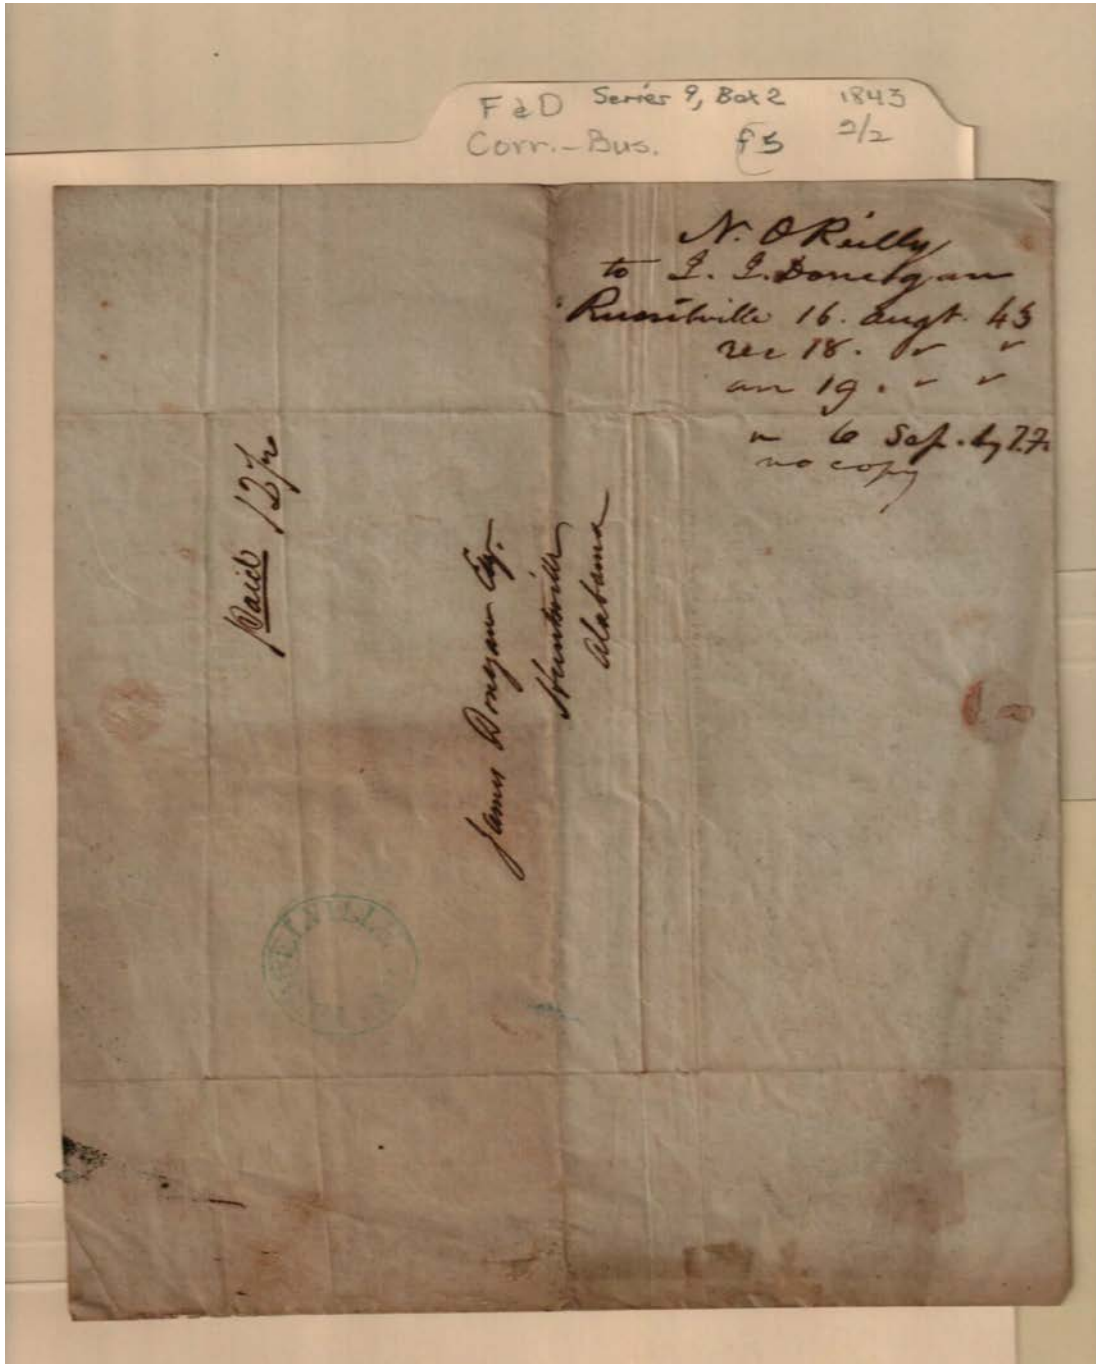 F & D Series 9, Box 2 1843
Corr.-Bus. f5 2/2
N. OReilly
to J. J. Donegan
16. augt. 43
rec 18. " "
an 19. " "
" 6 Sep. by
no copy
paid 12½
James Donegan Esq.
Huntsville
Alabama